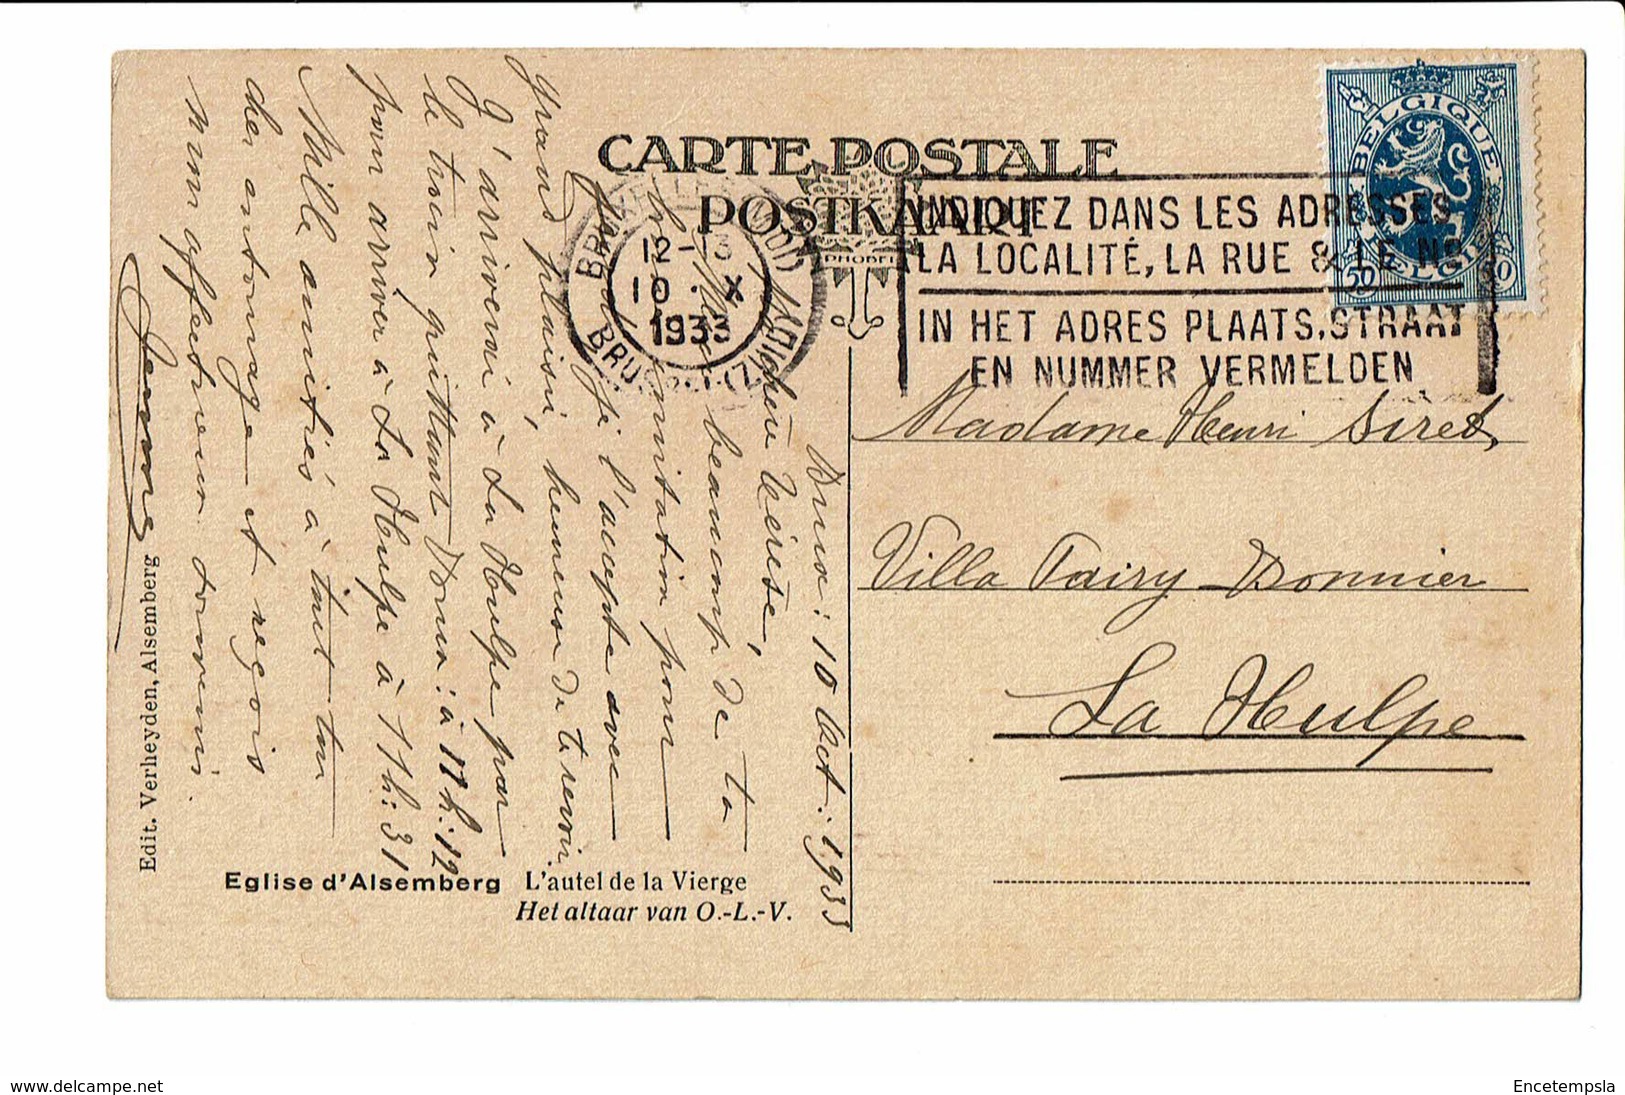 CARTE POSTALE
POSTKAART
PHOBEL
BELGIQUE
BELGIE
50 50
BRUXELLES (MIDI)
12-13
10 · X
1933
BRUSSEL (ZUID)
INDIQUEZ DANS LES ADRESSES
LA LOCALITÉ, LA RUE & LE No
IN HET ADRES PLAATS, STRAAT
EN NUMMER VERMELDEN
Brux: 10 Oct: 1933
Thérèse,
Merci beaucoup de ta
invitation pour
que je l'accepte avec
grand plaisir, heureuse de te revoir.
J'arriverai à La Hulpe par
le train quittant Brux: à 11 h: 12
pour arriver à La Hulpe à 11h: 31
Mille amitiés à tout ton
entourage et reçois
mon affectueux souvenir.
Madame Henri Siret,
Villa Fairy
La Hulpe
Edit. Verheyden, Alsemberg
Eglise d'Alsemberg L'autel de la Vierge
Het altaar van O.-L.-V.
www.delcampe.net
Encetempsla